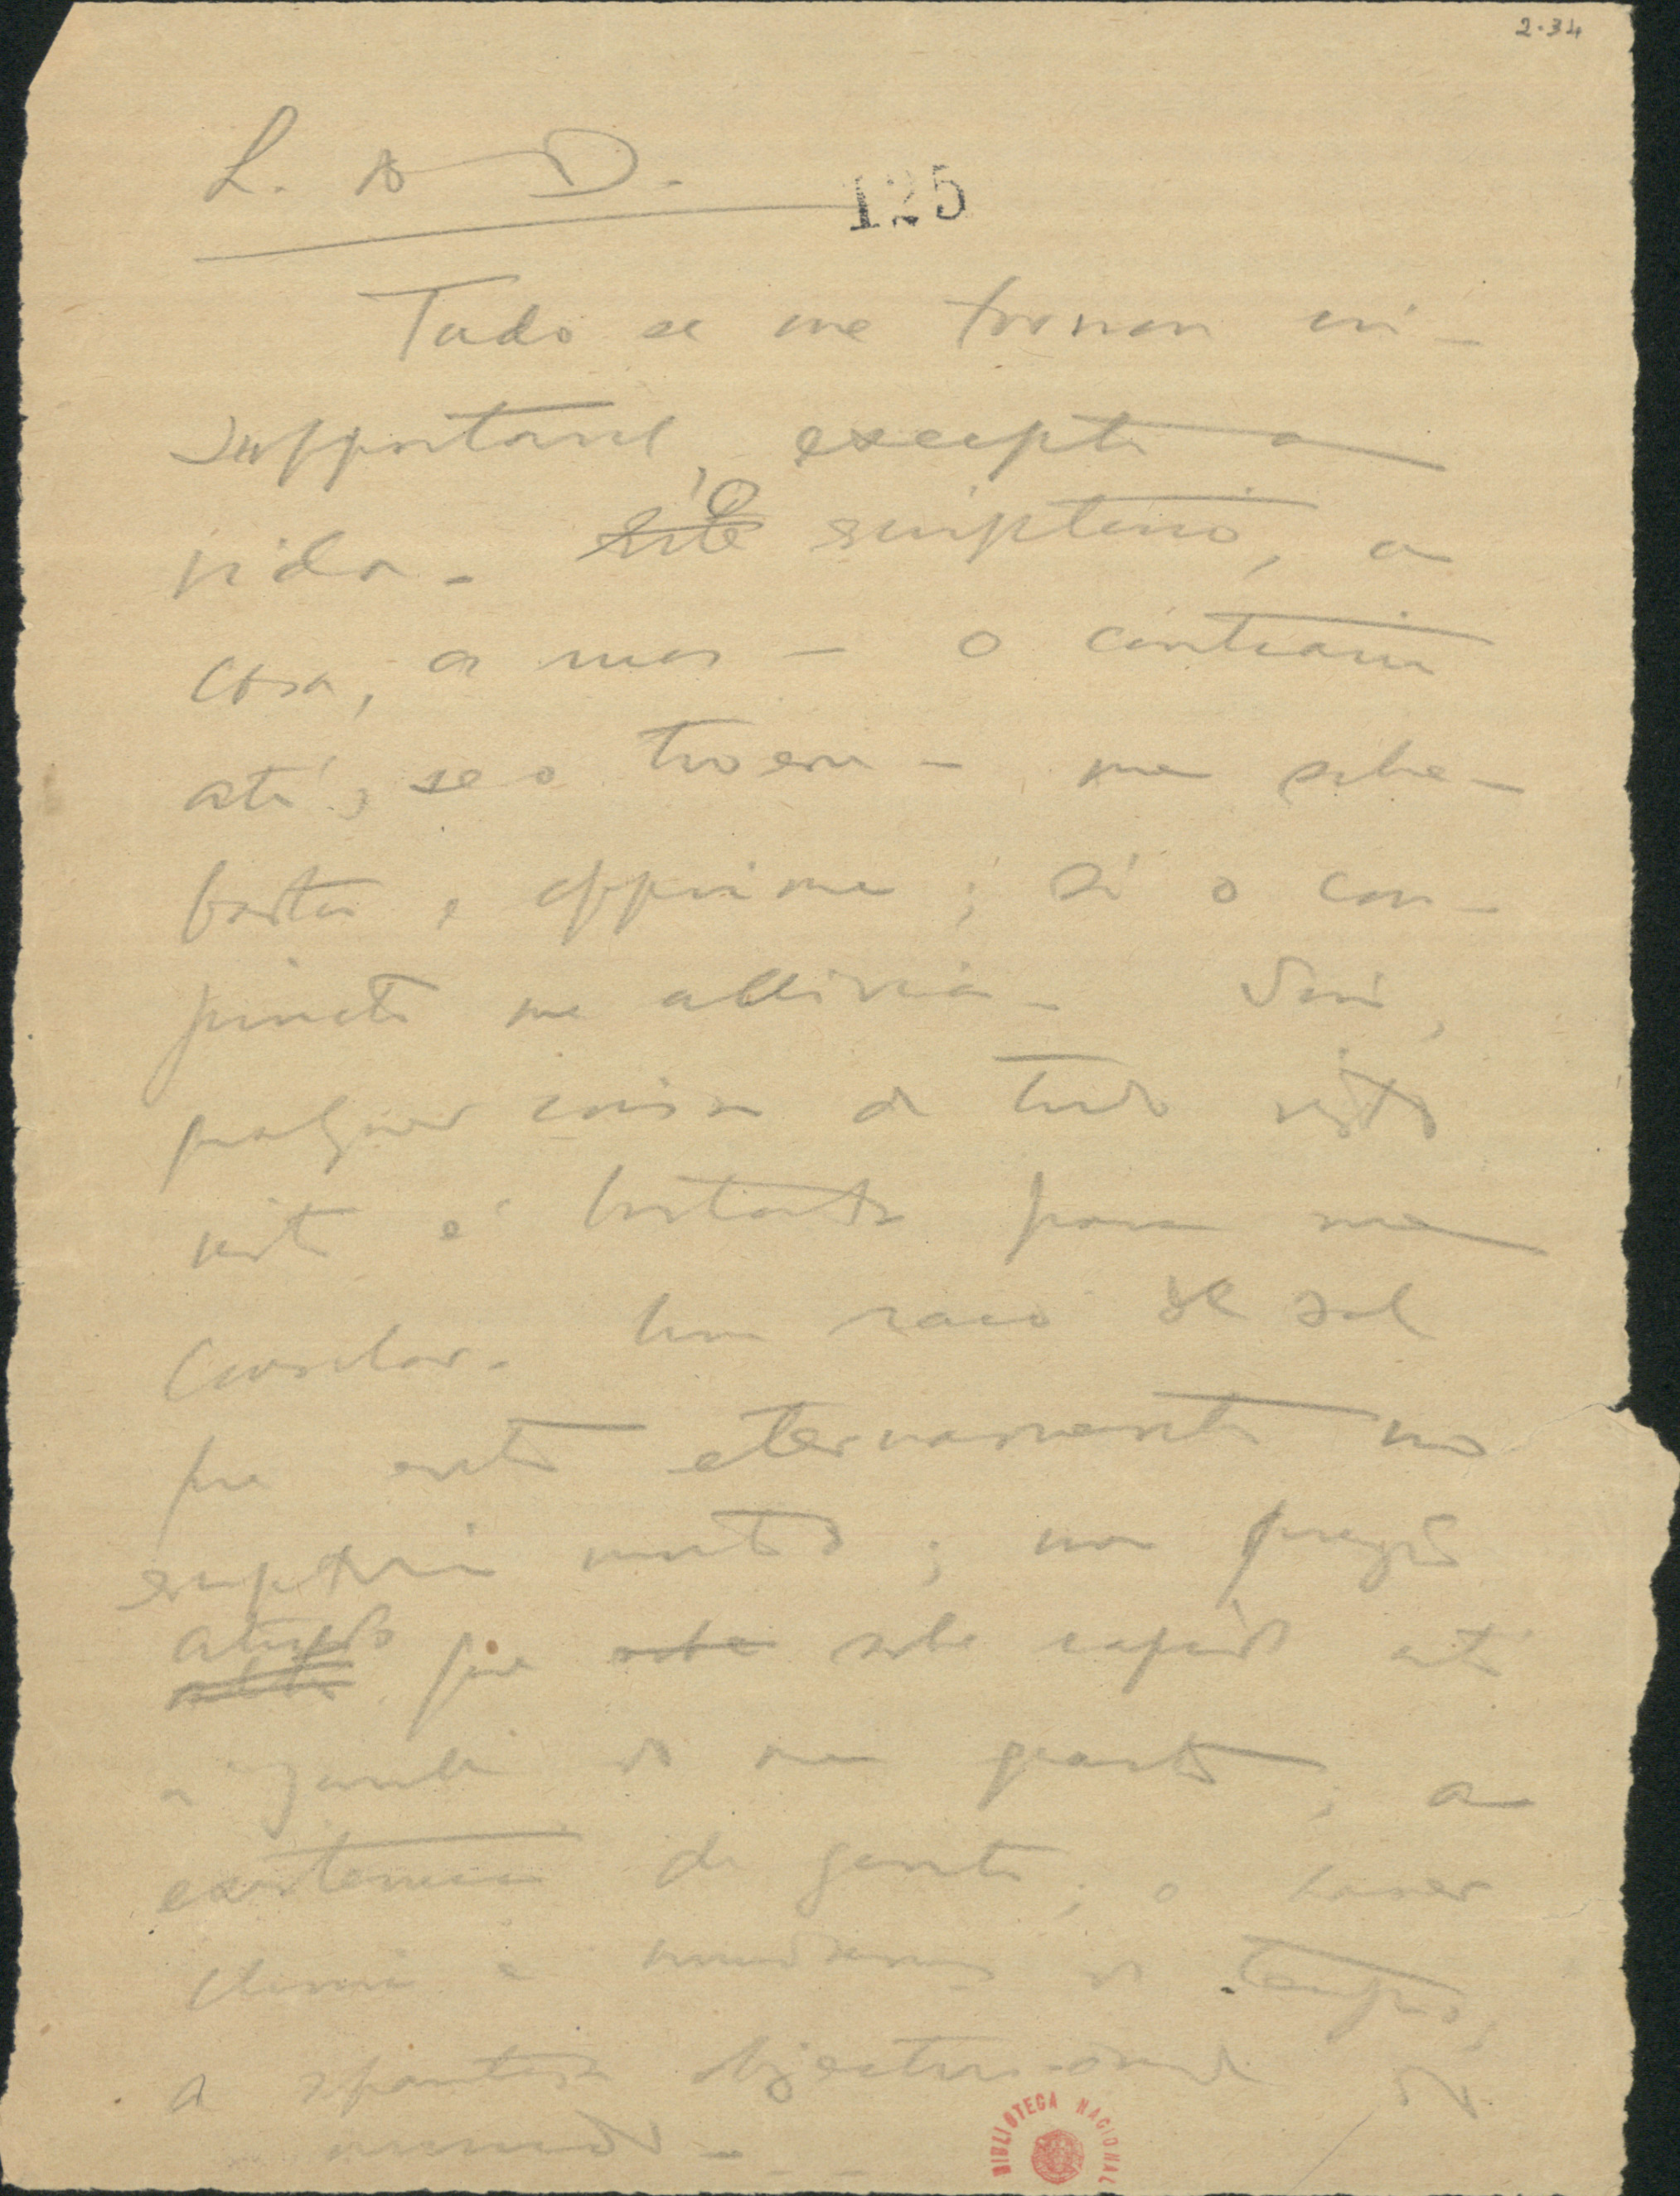 2-34
L. do D.
125
Tudo se me tornou in-
supportavel, excepto a
vida. O escriptorio, a
casa, as ruas — o contrario
até, se o tivesse — me sobre-
basta e opprime; só o con-
juncto me allivia. Sim,
qualquer coisa de tudo isto
é bastante para me
consolar. Um raio de sol
que entre eternamente no
escriptorio morto; um pregão
atirado que sobe rapido até
á janella do meu quarto; a
existencia de gente; o haver
clima e mudança de tempo;
a espantosa objectividade do
mundo...
BIBLIOTECA NACIONAL